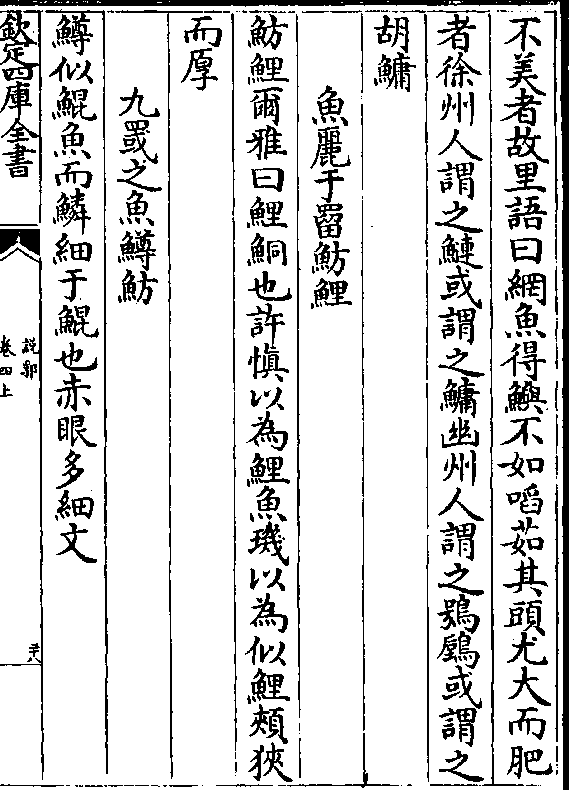 不美者故里語曰網魚得鱮不如啗茹其頭尤大而肥
者徐州人謂之鰱或謂之鱅幽州人謂之鴞鷉或謂之
胡鱅
魚麗于罶魴鯉
魴鯉爾雅曰鯉鮦也許慎以為鯉魚璣以為似鯉頰狹
而厚
九罭之魚鱒魴
鱒似鯤魚而鱗細于鯤也赤眼多細文
欽定四庫全書
說郛
卷四上